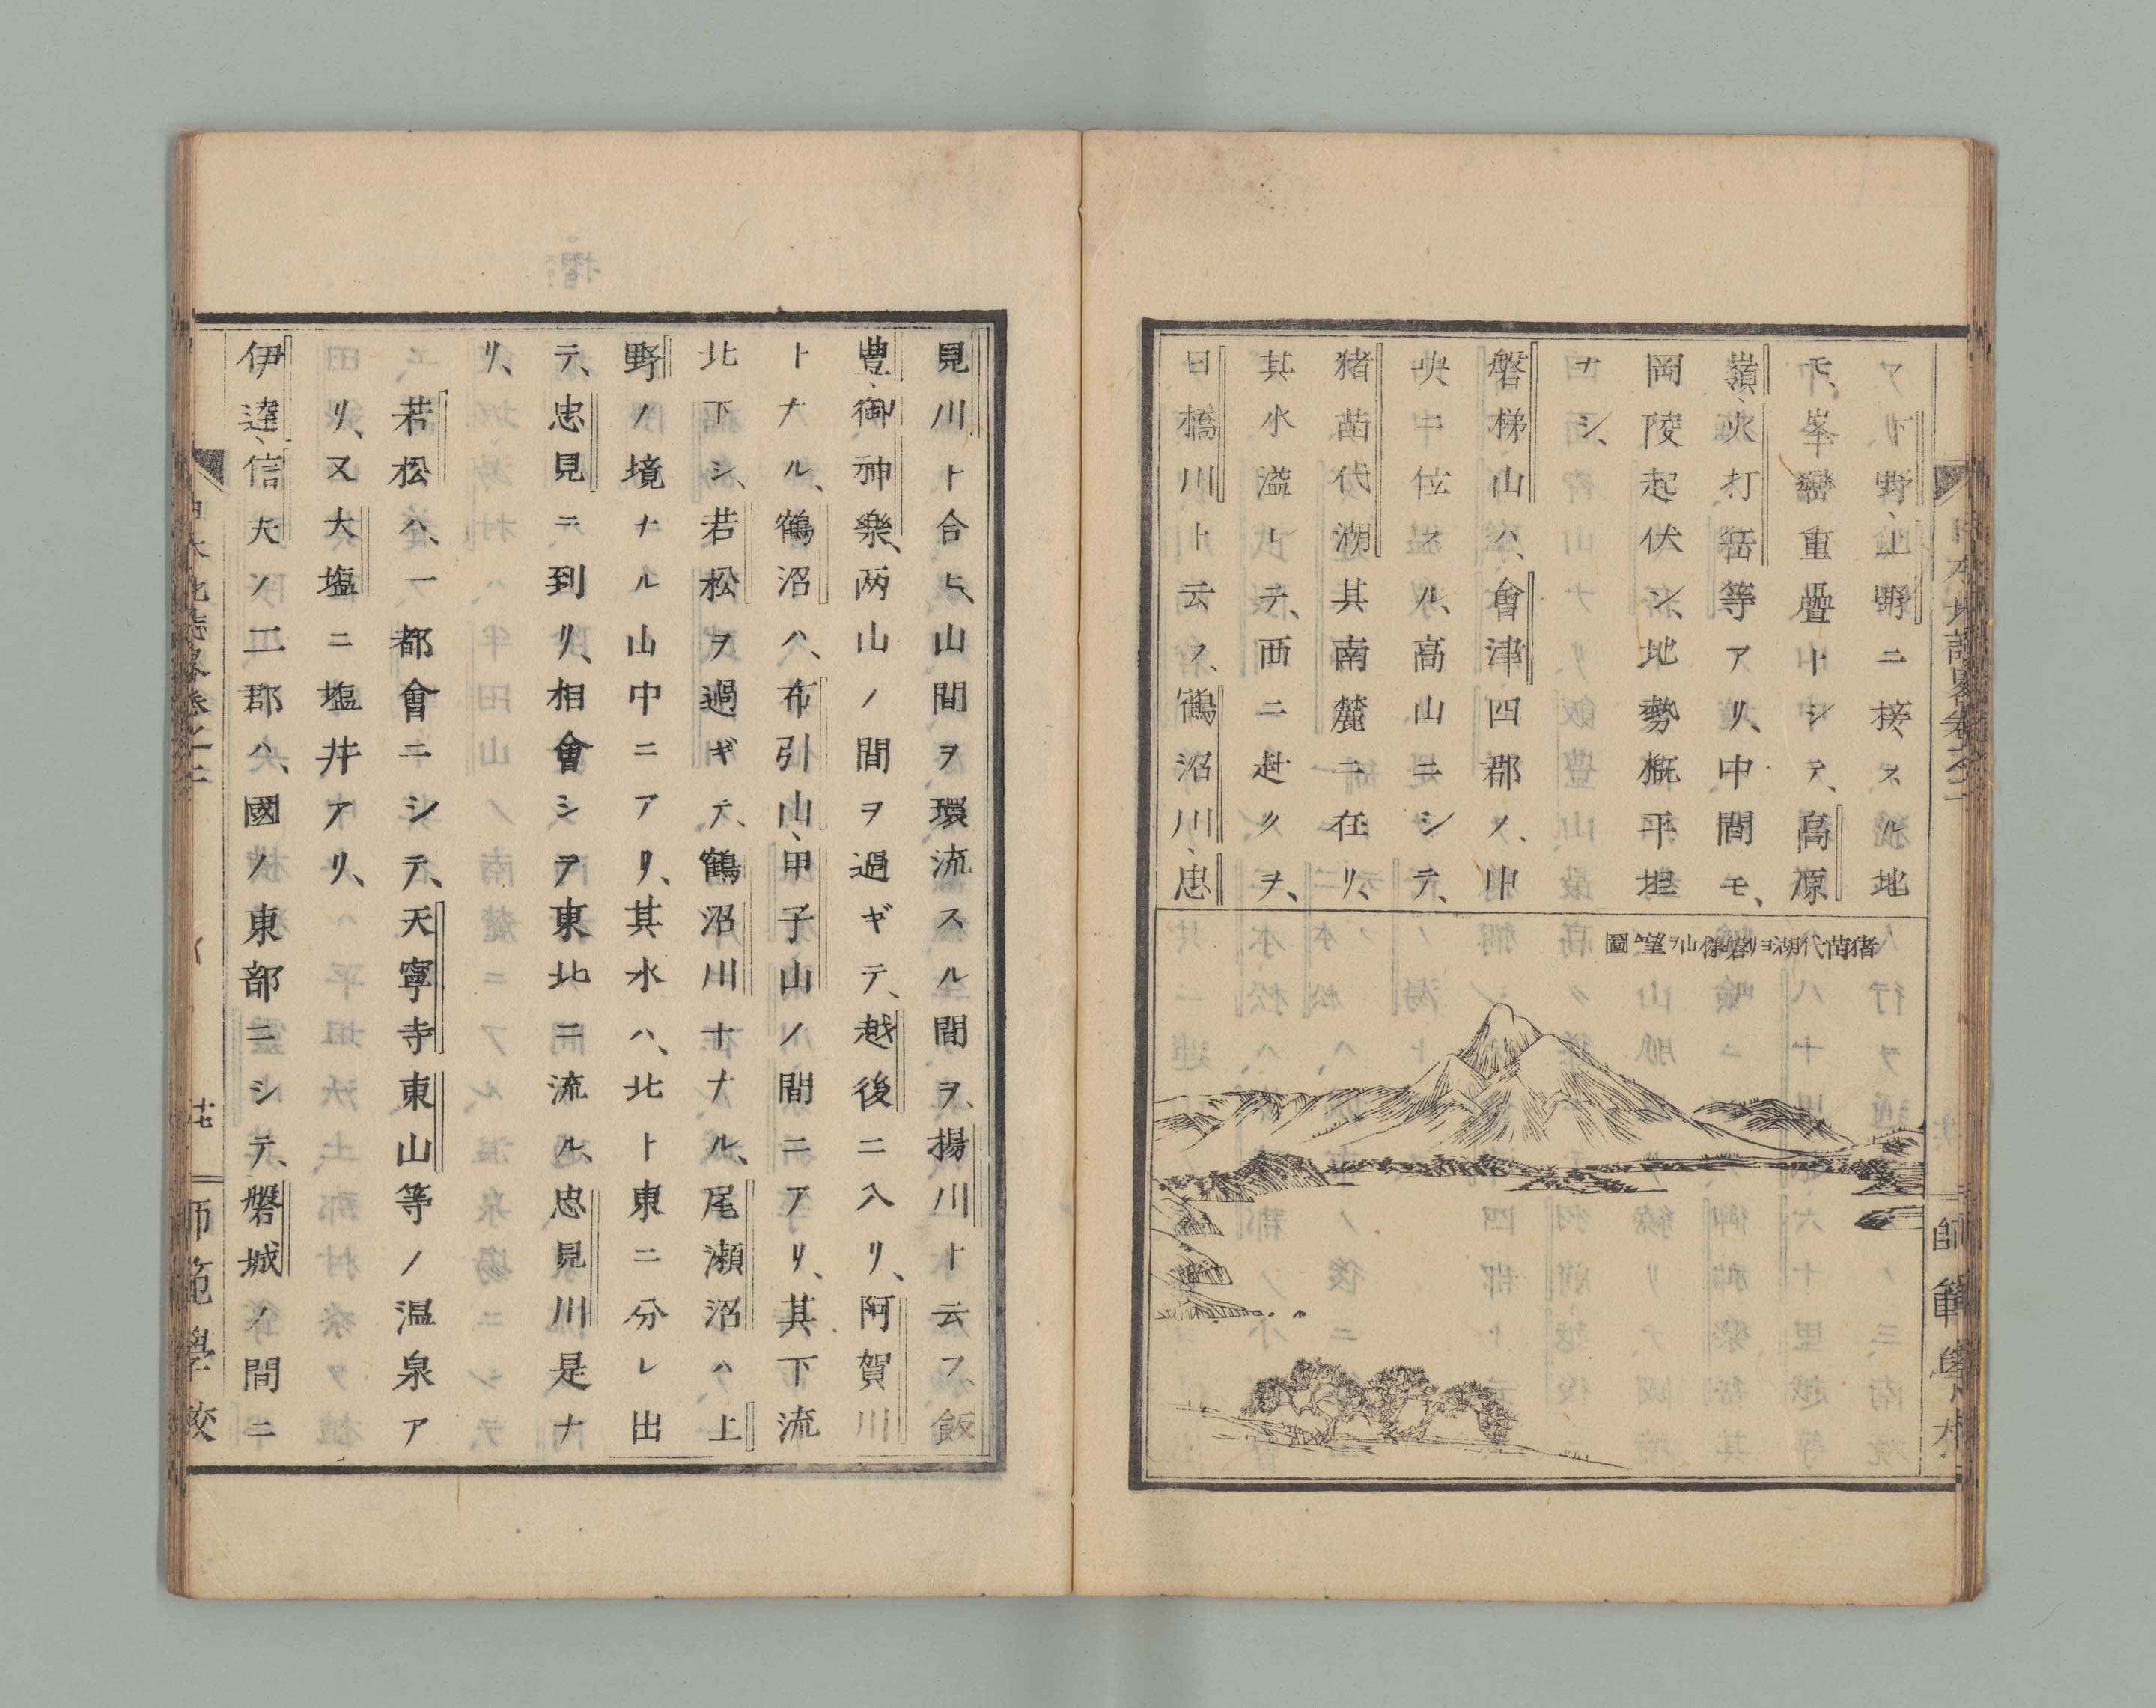 日本地誌畧卷之二
師範學校
アリ、下野、上野ニ接スル地
モ、峯巒重疊トシテ、高原
嶺、火打嵓等アリ、中間モ、
岡陵起伏シ、地勢概平坦
ナシ、
磐梯山ハ、會津四郡ノ、中
央ニ位スル、高山ニシテ、
猪苗代湖其南麓ニ在リ、
其水溢レテ、西ニ赴クヲ、
日橋川ト云フ、鶴沼川、忠
猪苗代湖ヨリ磐梯山ヲ望ム圖
見川ト合ヒ、山間ヲ環流スル間ヲ、揚川ト云フ、飯
豊、御神樂、两山ノ間ヲ過ギテ、越後ニ入リ、阿賀川
トナル、鶴沼ハ、布引山、甲子山ノ間ニアリ、其下流
北下シ、若松ヲ過ギテ、鶴沼川ナナル、尾瀬沼ハ、上
野ノ境ナル山中ニアリ、其水ハ、北ト東ニ分レ出
テ、忠見ニ到リ、相會シヲ東北ニ流ル、忠見川是ナ
リ、
若松ハ、一都會ニシテ、天寧寺東山等ノ温泉ア
リ、又大塩ニ塩井アリ、
伊達、信夫ノ二郡ハ、國ノ東部ニシテ、磐城ノ間ニ
日本地誌畧卷之二
廿七
師範學校